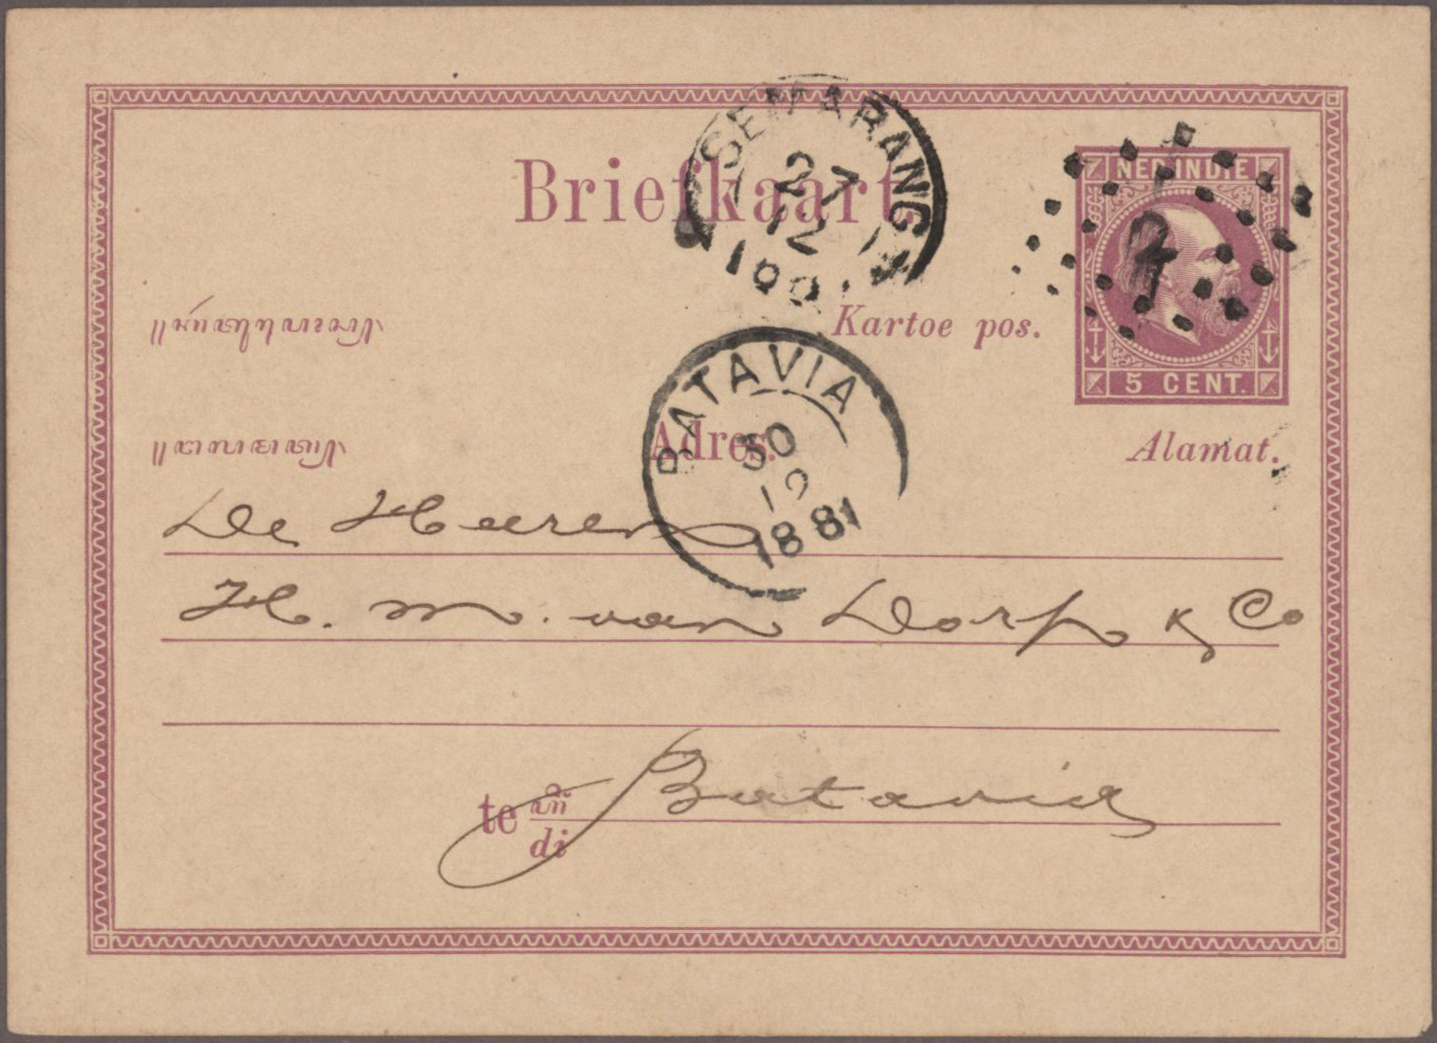 SEMARANG
27
12
NED. INDIE
2
Briefkaart.
Kartoe pos.
5 CENT.
BATAVIA
30
12
1881
Adres.
Alamat.
De Heeren
H. M. van Dorp & Co
te di
Batavia